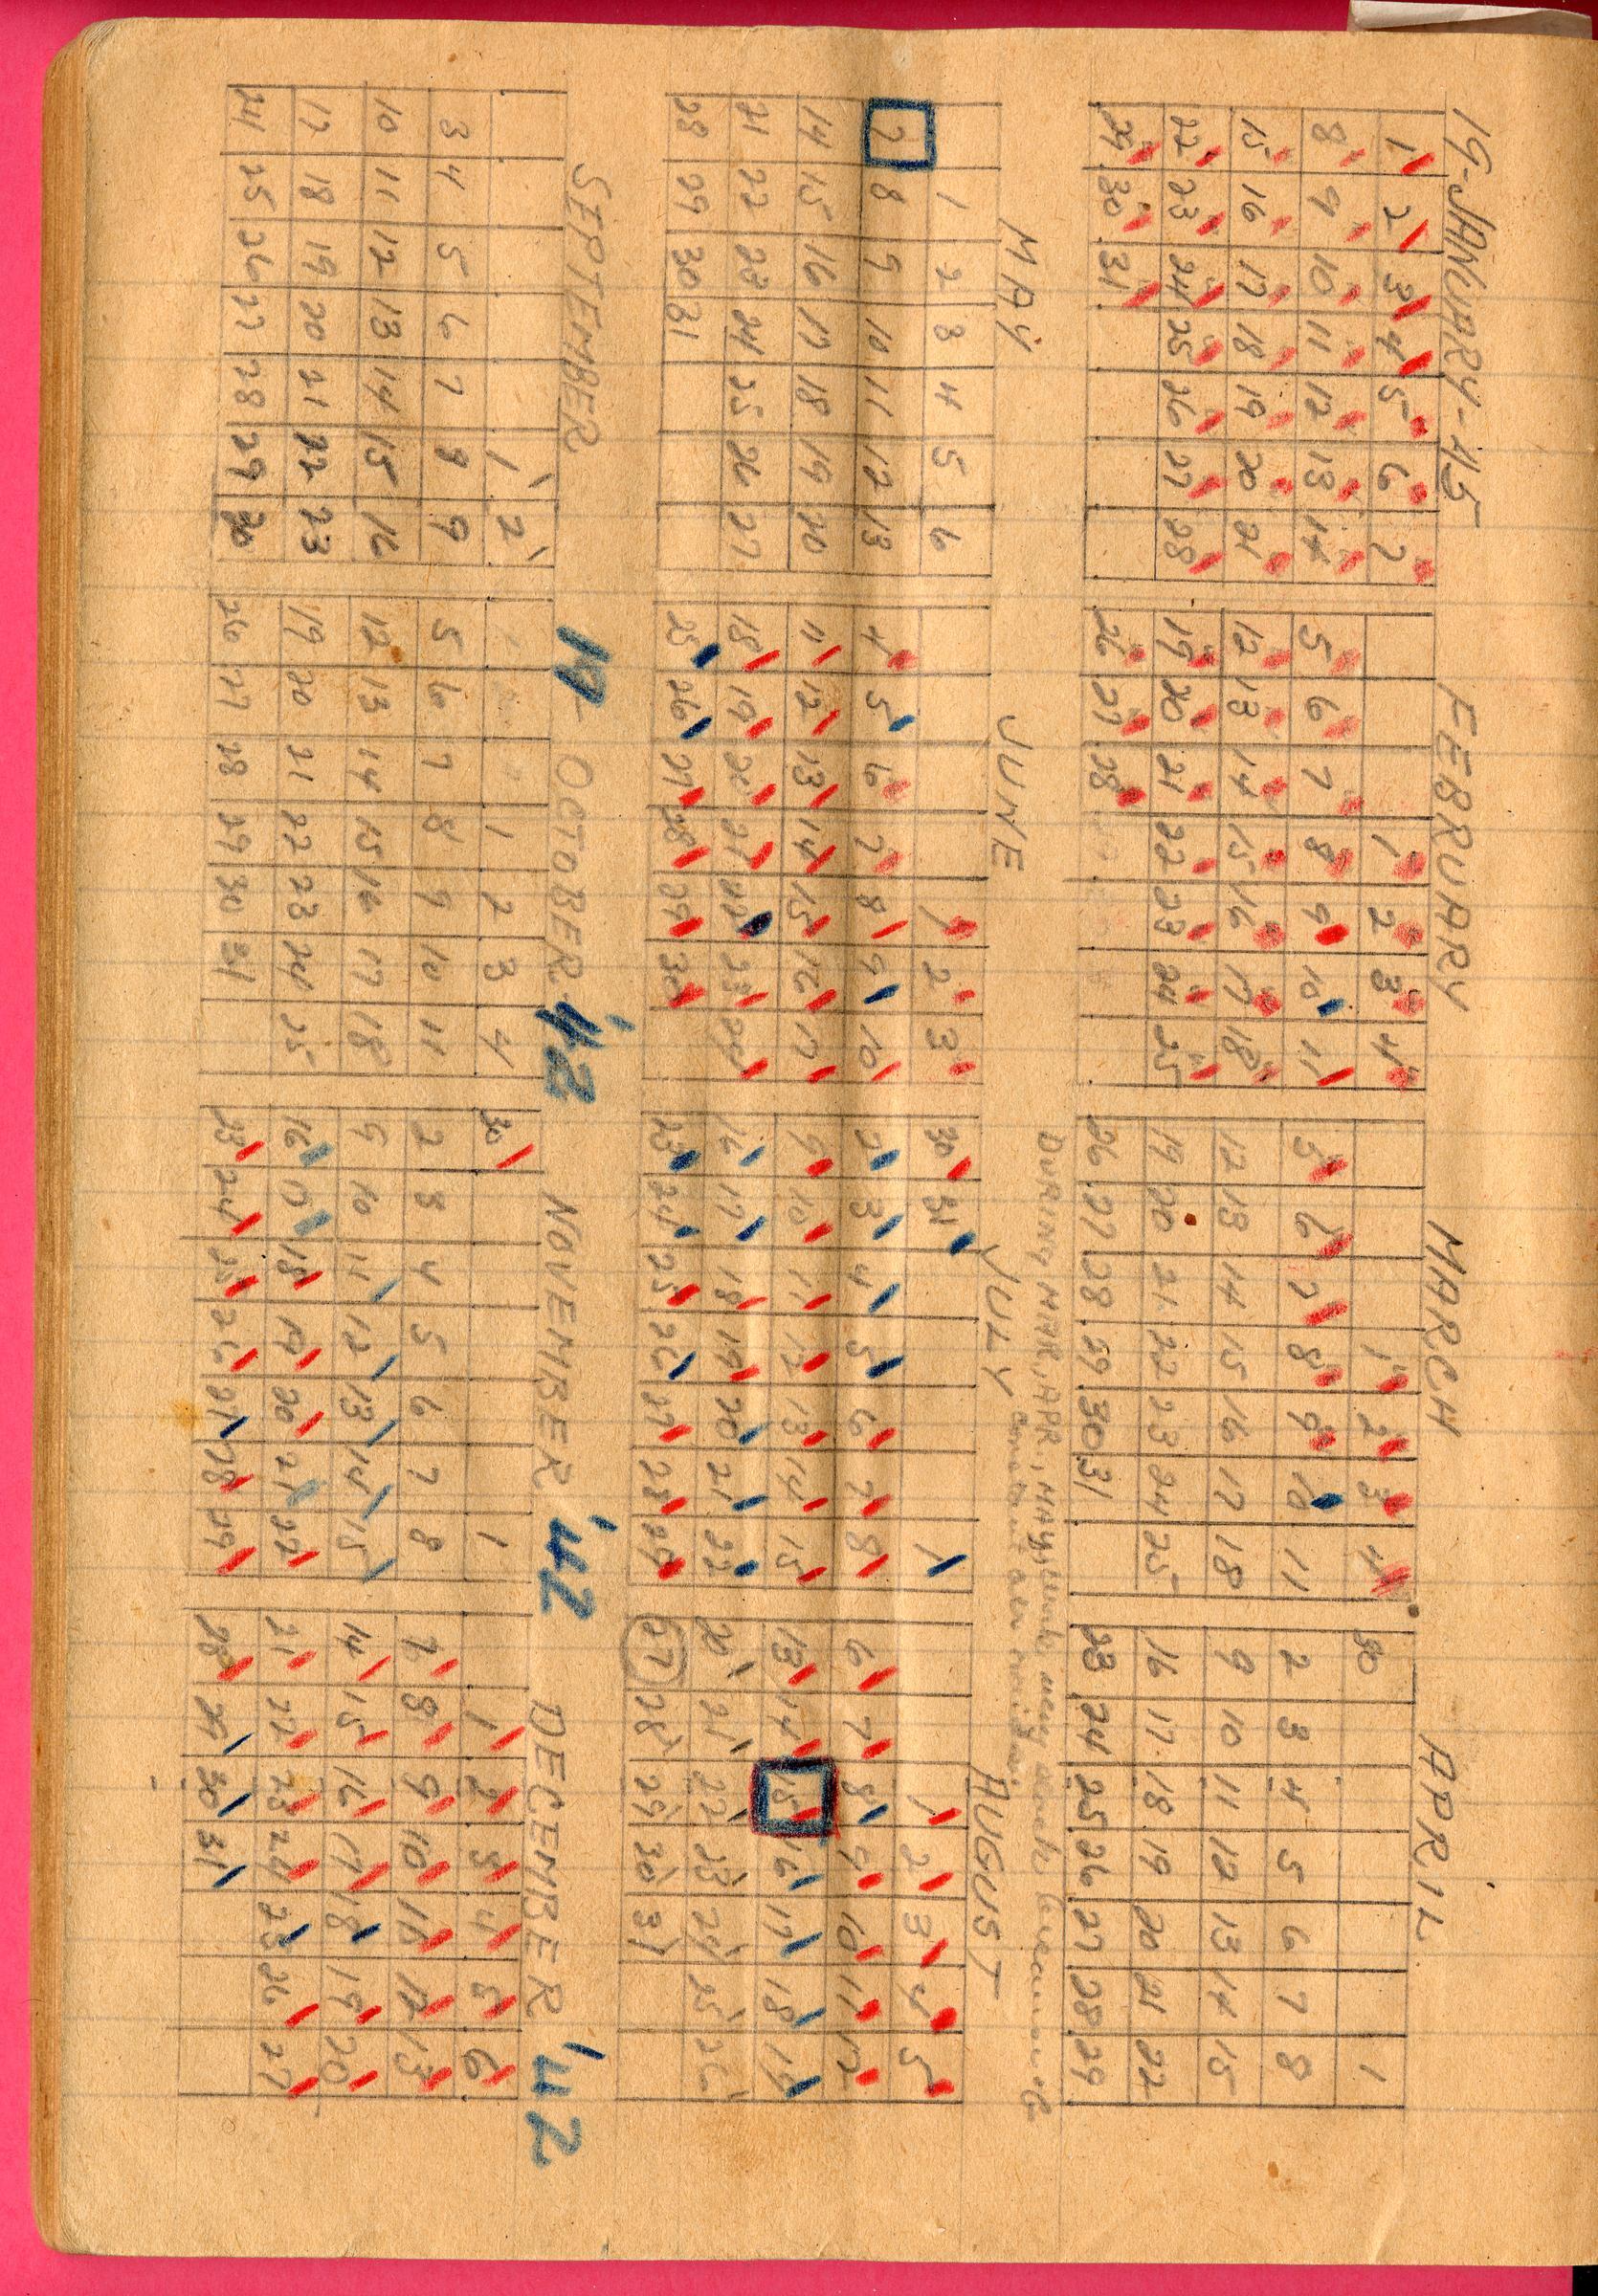 19-JANUARY-45
1 2 3 4 5 6 7
8 9 10 11 12 13 14
15 16 17 18 19 20 21
22 23 24 25 26 27 28
29 30 31
FEBRUARY
1 2 3 4
5 6 7 8 9 10 11
12 13 14 15 16 17 18
19 20 21 22 23 24 25
26 27 28
MARCH
1 2 3 4
5 6 7 8 9 10 11
12 13 14 15 16 17 18
19 20 21 22 23 24 25
26 27 28 29 30 31
APRIL
30 1
2 3 4 5 6 7 8
9 10 11 12 13 14 15
16 17 18 19 20 21 22
23 24 25 26 27 28 29
DURING MAR, APR, MAY, JUNE
MAY
1 2 3 4 5 6
7 8 9 10 11 12 13
14 15 16 17 18 19 20
21 22 23 24 25 26 27
28 29 30 31
JUNE
1 2 3
4 5 6 7 8 9 10
11 12 13 14 15 16 17
18 19 20 21 22 23 24
25 26 27 28 29 30
JULY
30 31 1
2 3 4 5 6 7 8
9 10 11 12 13 14 15
16 17 18 19 20 21 22
23 24 25 26 27 28 29
AUGUST
1 2 3 4 5
6 7 8 9 10 11 12
13 14 15 16 17 18 19
20 21 22 23 24 25 26
27 28 29 30 31
SEPTEMBER
1 2
3 4 5 6 7 8 9
10 11 12 13 14 15 16
17 18 19 20 21 22 23
24 25 26 27 28 29 30
19- OCTOBER '42
1 2 3 4
5 6 7 8 9 10 11
12 13 14 15 16 17 18
19 20 21 22 23 24 25
26 27 28 29 30 31
NOVEMBER '42
30 1
2 3 4 5 6 7 8
9 10 11 12 13 14 15
16 17 18 19 20 21 22
23 24 25 26 27 28 29
DECEMBER '42
1 2 3 4 5 6
7 8 9 10 11 12 13
14 15 16 17 18 19 20
21 22 23 24 25 26 27
28 29 30 31